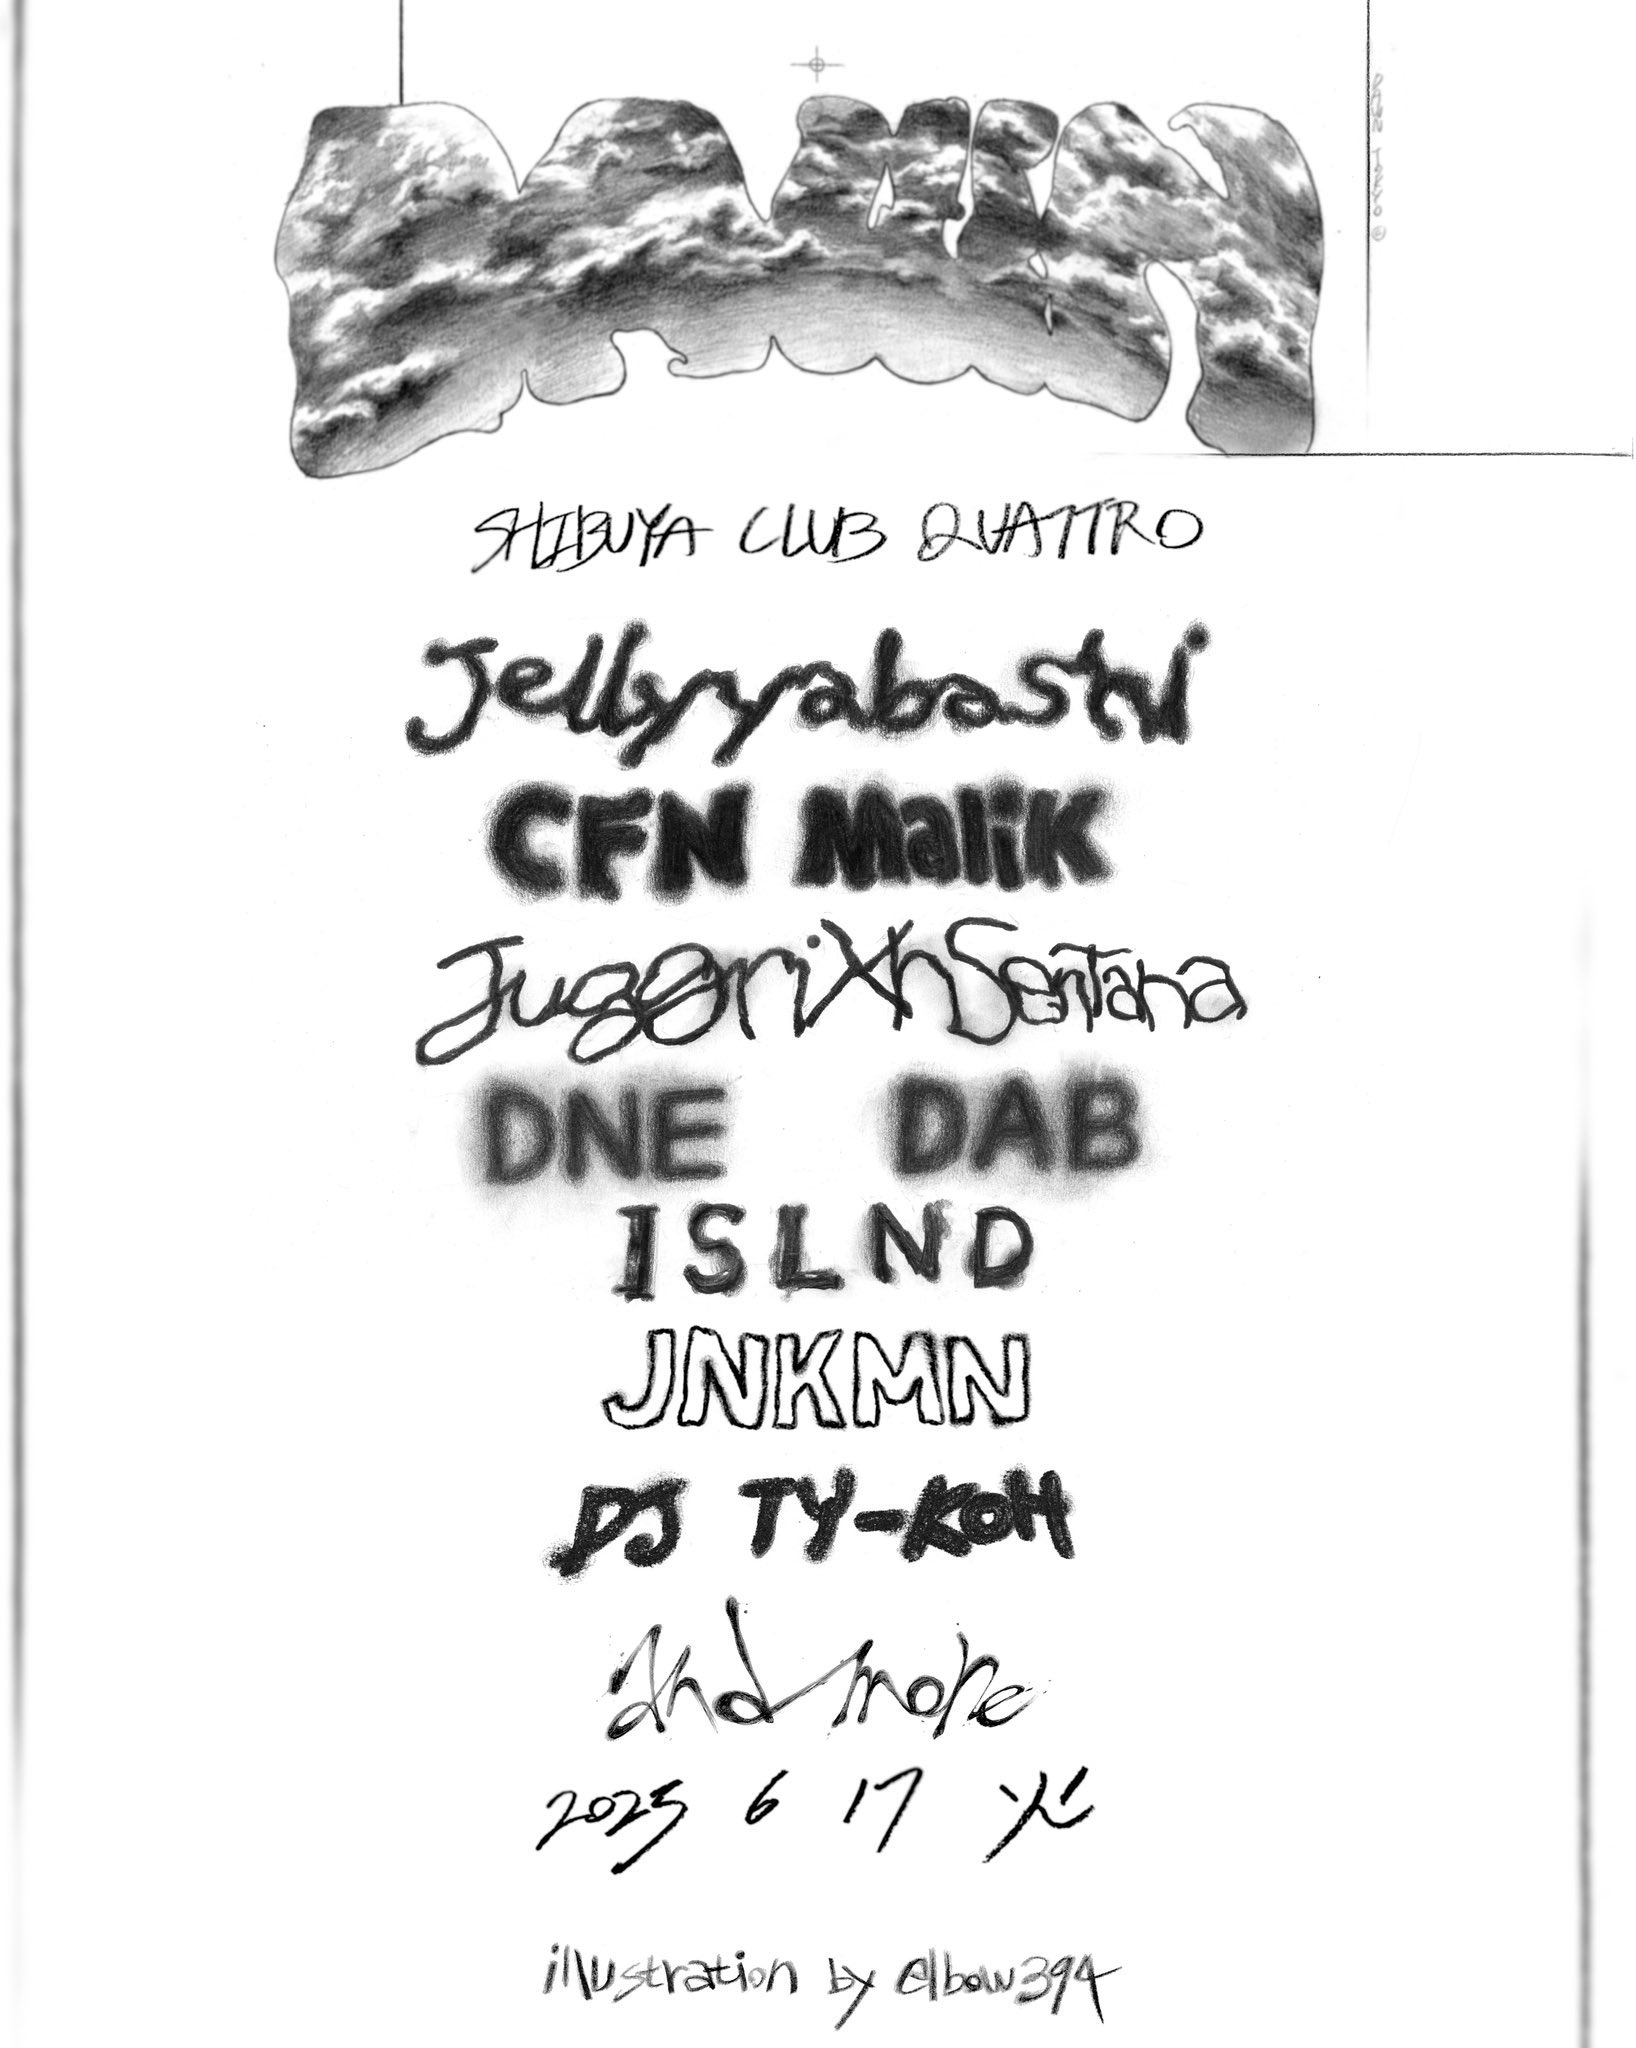 SHIBUYA CLUB QUATTRO
Jellyyabashi
CFN Malik
JuggrixhSentana
DNE DAB
ISLND
JNKMN
DJ TY-KOH
and more
2025 6 17 火
illustration by elbow394